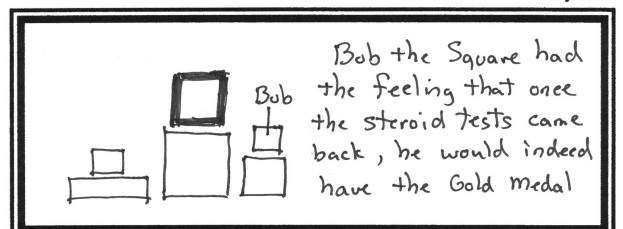 Bob the Square had
the feeling that once
the steroid tests came
back, he would indeed
have the Gold medal
Bob